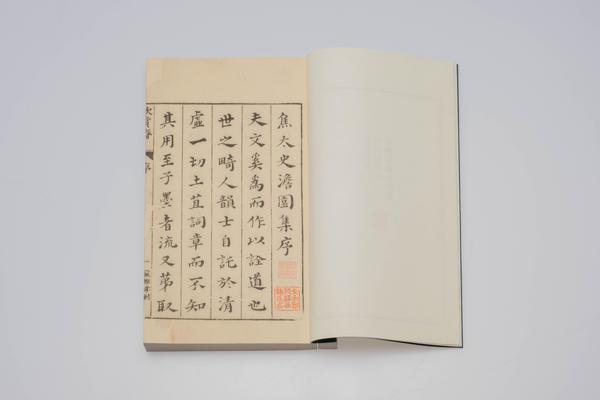 焦太史澹園集序
夫文奚為而作以詮道也
世之畸人韻士自託於清
虛一切土苴詞章而不知
其用至于墨者流又第取
欣賞齋
序
一